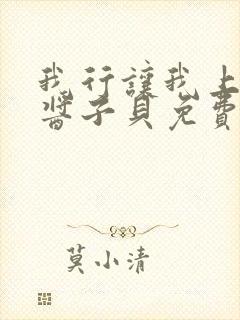 我行讓我上
醬子貝免費
莫小清